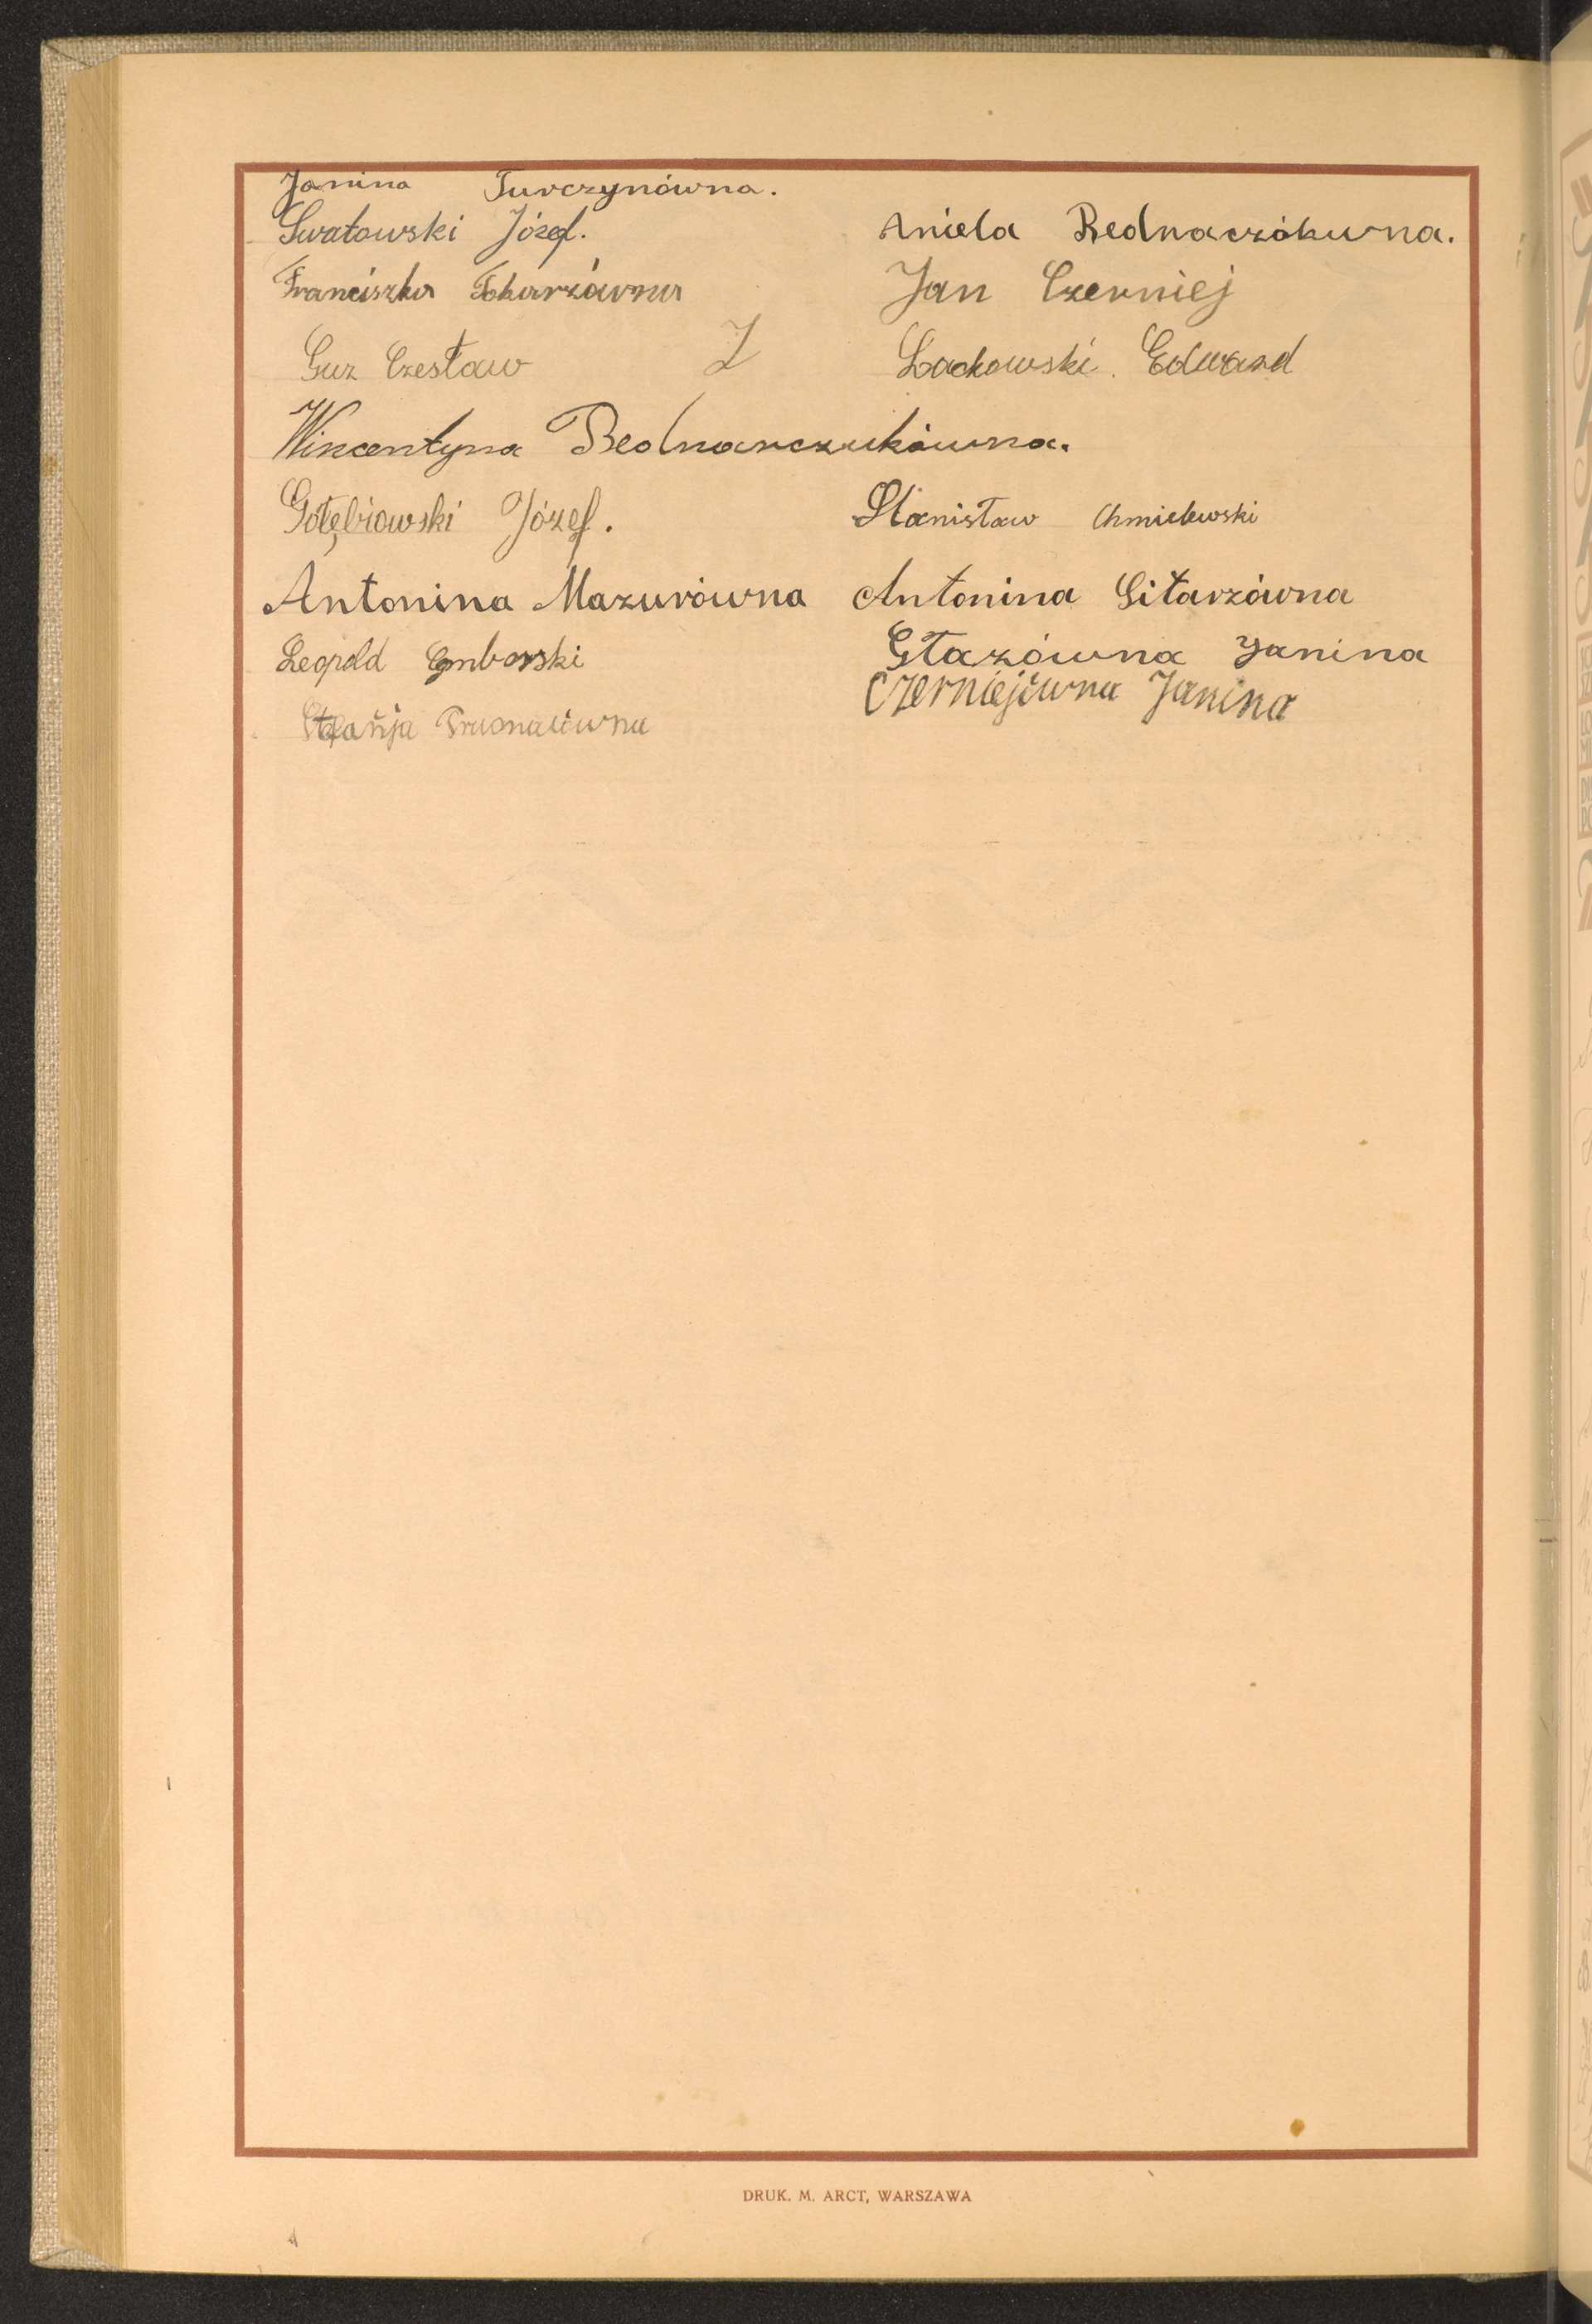 Janina Turczynówna.
Swatowski Józef.
Aniela Bednaczókwna.
Franciszka Tokarzówna
Jan Czerniej
Guz Czesław
Lackowski. Edward
Wincentyna Bednarczukówna.
Gołębiowski Józef.
Stanisław Chmielewski
Antonina Mazurówna
Antonina Sitarzówna
Leopold
Głazówna Janina
Czerniejówna Janina
Stefańja
DRUK. M. ARCT, WARSZAWA